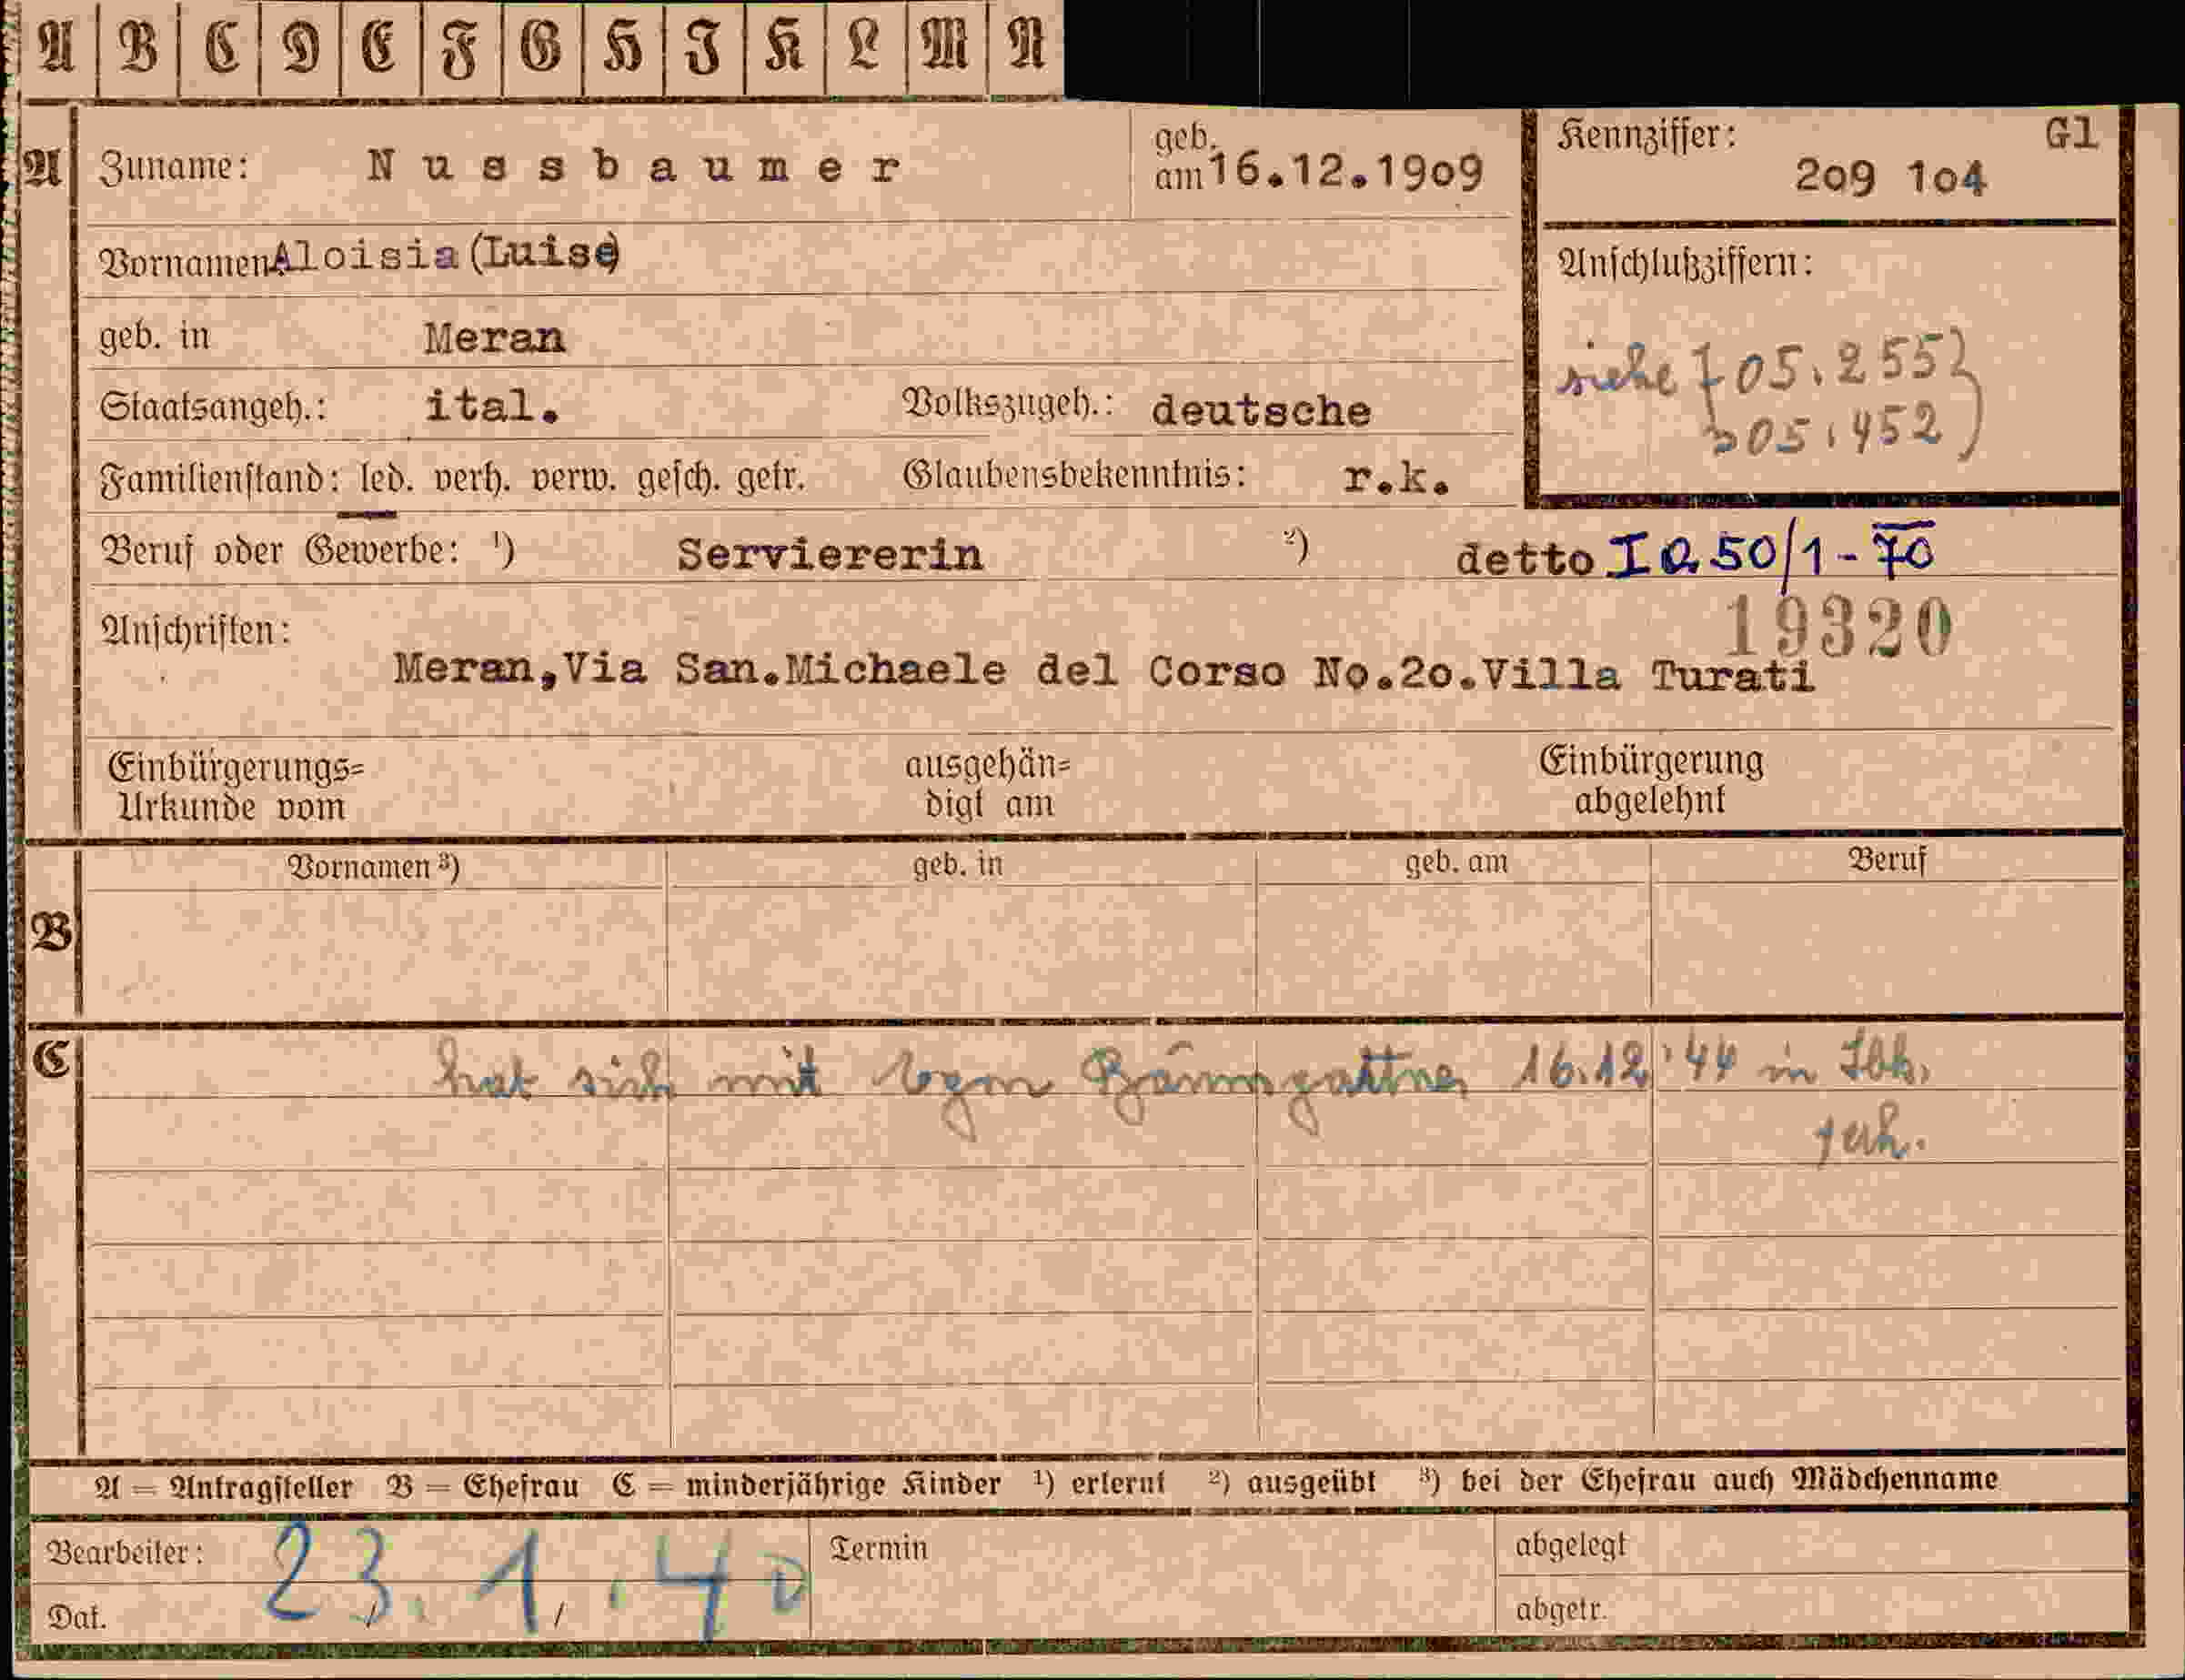 A B C D E F G H I K L M N
A Zuname: Nussbaumer geb. am 16.12.1909 Kennziffer: Gl 209 104
Vornamen Aloisia (Luise) Anschlußziffern:
geb. in Meran siehe 705.255
Staatsangeh.: ital. Volkszugeh.: deutsche 05.452
Familienstand: led. verh. verw. gesch. getr. Glaubensbekenntnis: r.k.
Beruf oder Gewerbe: ¹) Serviererin ²) detto I Q 50/1-70
19320
Anschriften:
Meran,Via San.Michaele del Corso No.2o.Villa Turati
Einbürgerungs= ausgehän= Einbürgerung
Urkunde vom digt am abgelehnt
Vornamen ³) geb. in geb. am Beruf
B
C hat sich mit 16.12.44 in Ibk.
A = Antragsteller B = Ehefrau C = minderjährige Kinder ¹) erlernt ²) ausgeübt ³) bei der Ehefrau auch Mädchenname
Bearbeiter: 23.1.40 Termin abgelegt
Dat. abgetr.